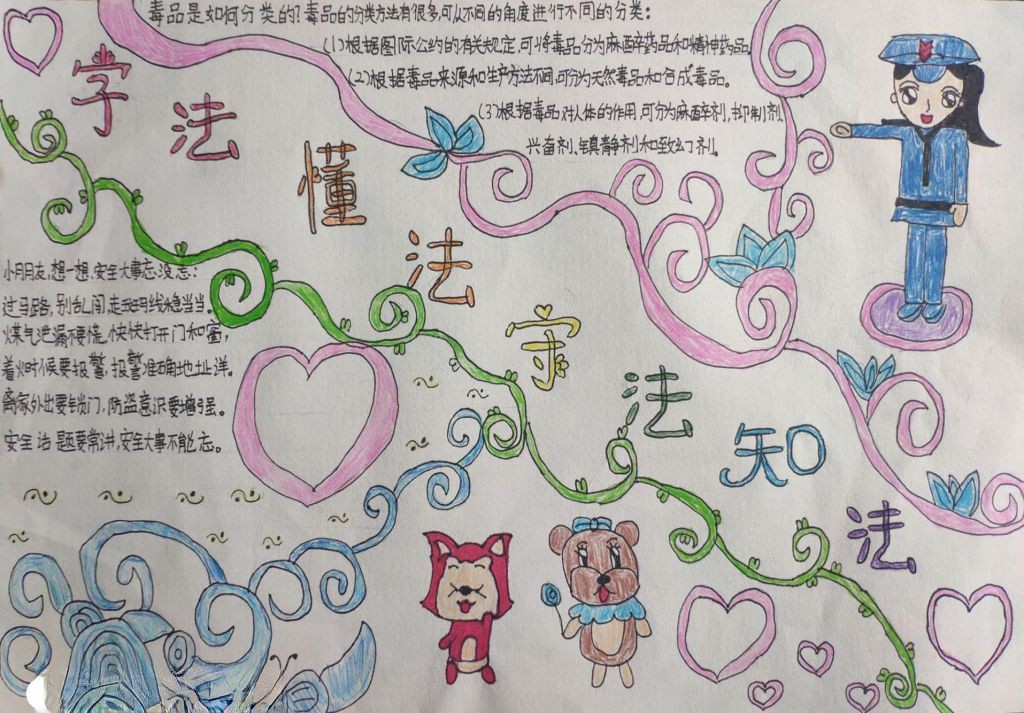 毒品是如何分类的?毒品的分类方法有很多,可从不同的角度进行不同的分类:
(1)根据国际公约的有关规定,可将毒品分为麻醉药品和精神药品。
(2)根据毒品来源和生产方法不同,可分为天然毒品和合成毒品。
(3)根据毒品对人体的作用,可分为麻醉剂,抑制剂、
兴奋剂、镇静剂和致幻剂。
学法懂法守法知法
小朋友,想一想,安全大事忘没忘:
过马路,别乱闯,走斑马线稳当当。
煤气泄漏不要慌,快快打开门和窗,
着火时候要报警,报警准确地址详。
离家外出要锁门,防盗意识要增强。
安全话题要常讲,安全大事不能忘。